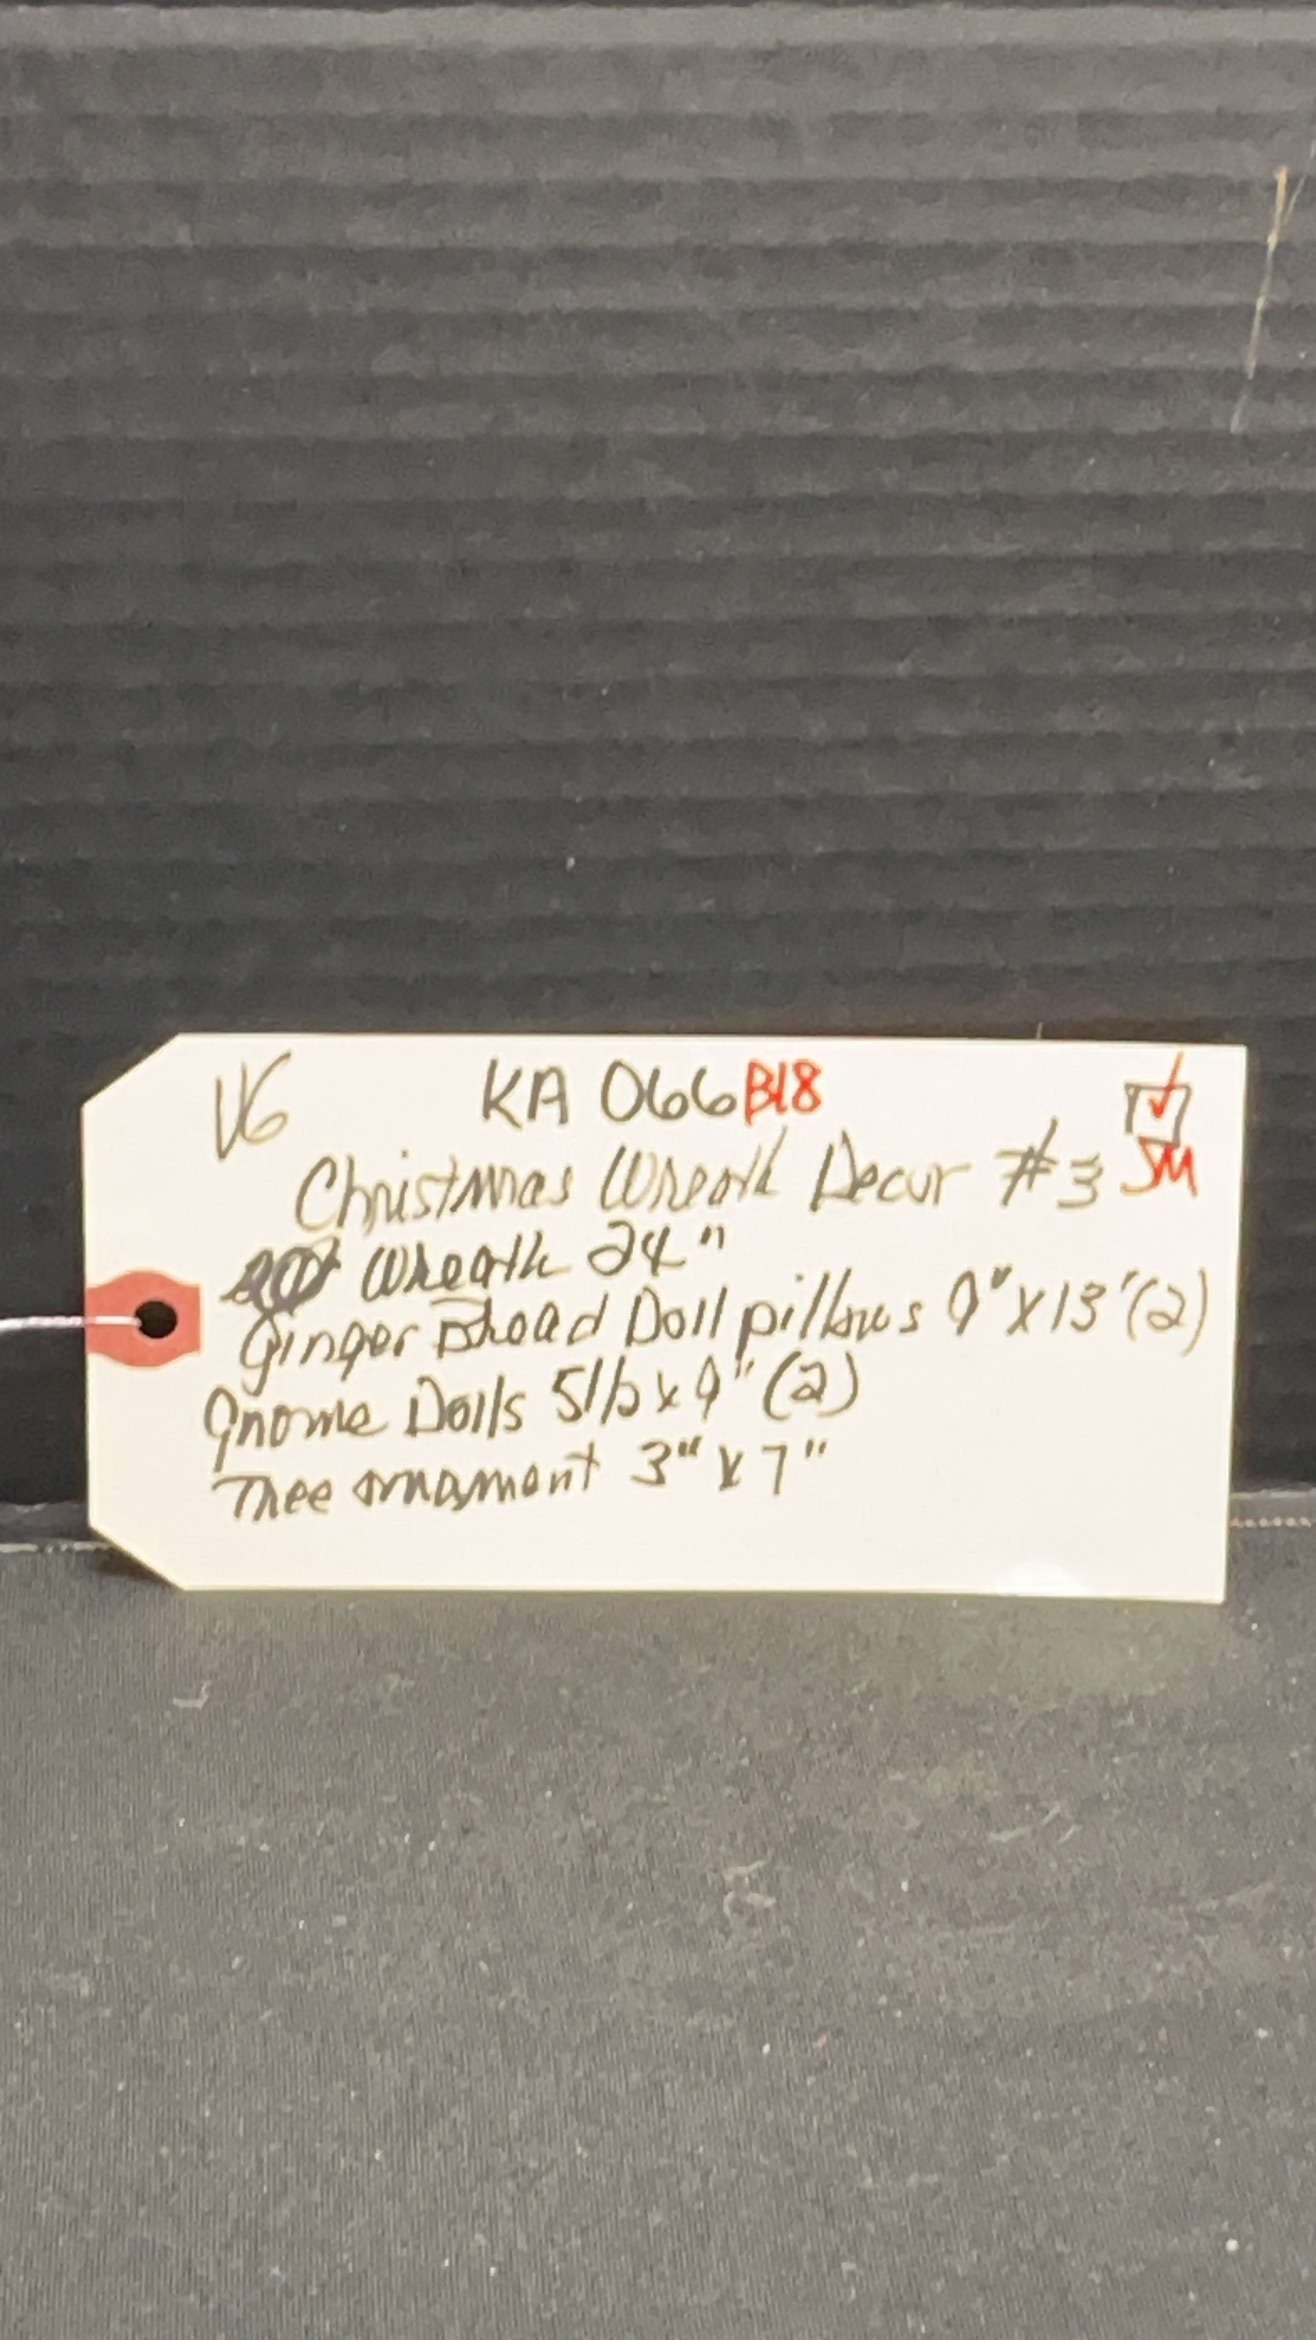 VG KA 066 B18
Christmas Wreath Decor #3 SM
Wreath 24"
Ginger Bread Doll pillows 9" X 13' (2)
Gnome Dolls 5 1/2 x 9" (2)
Tree ornament 3" x 7"